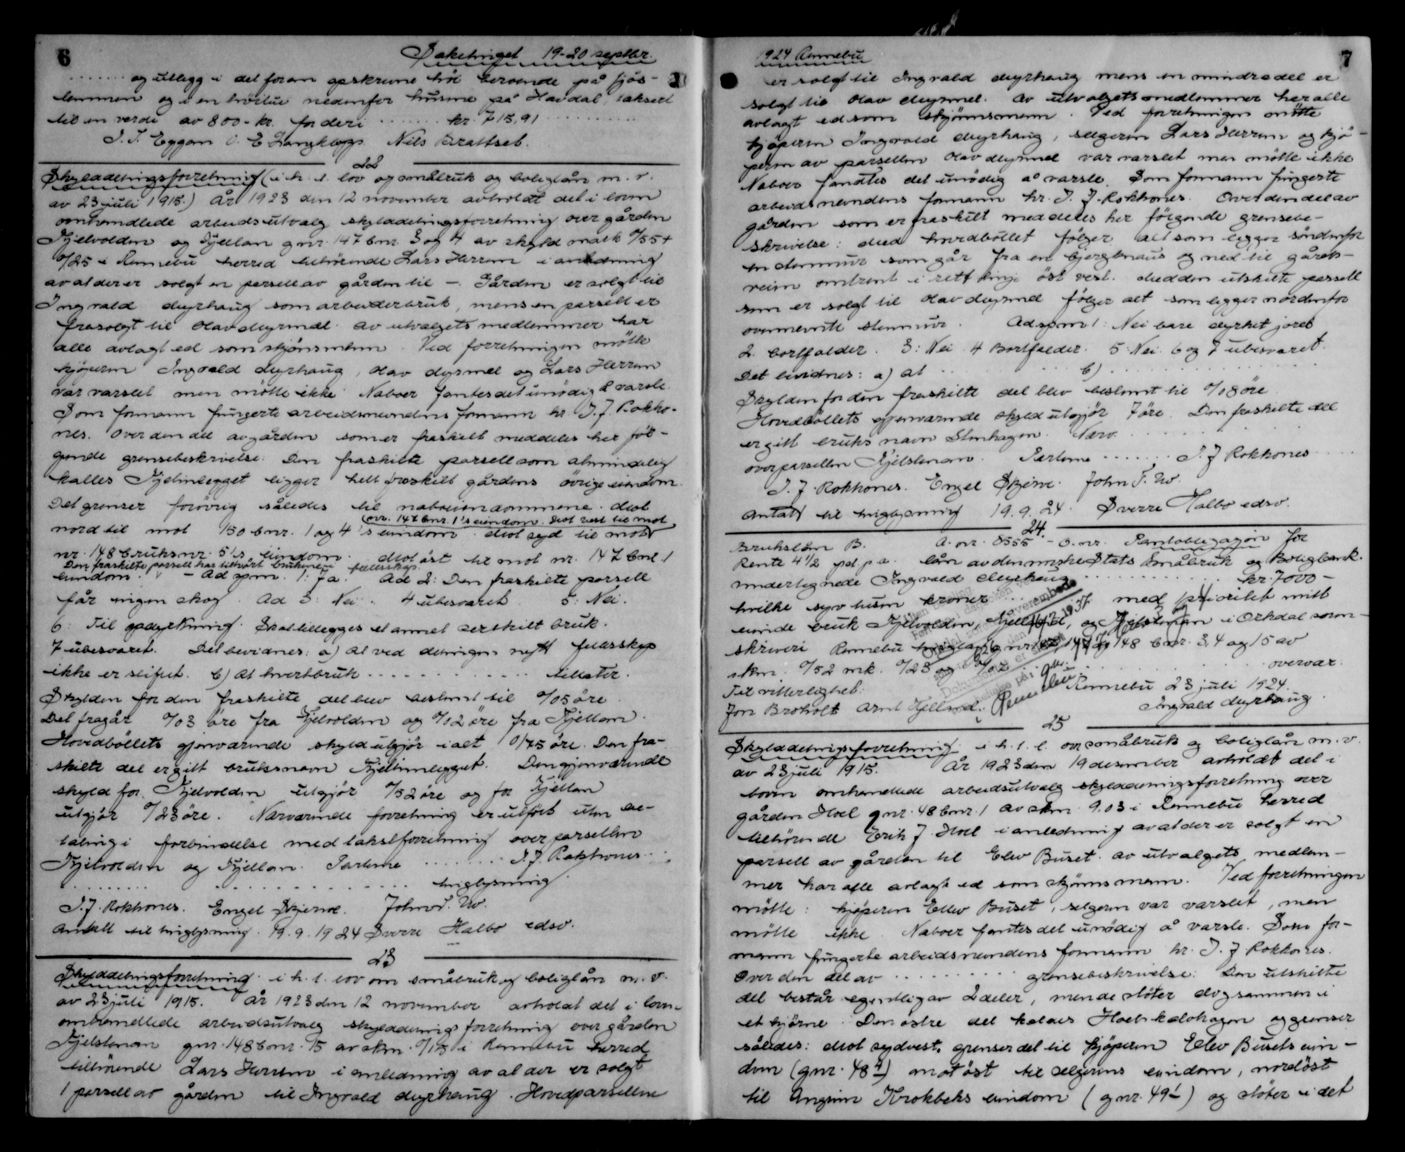 6
Saketinget 19-20 septbr.
og utlegg i det foran opskrevne höi beroende på fjös-
lemmen og i en höstue nedenfor husene på Havdal, taksert
til en verdi av 800.- kr. for deri kr. 715,91
I. I. Eggan E Langklopp Nils Brattset.
22
Skylddelingsforretning (i h. t. lov og småbruk og boliglån m. v.
av 23 juli 1915.) År 1923 den 12 november avholdt det i loven
omhandlede arbeidsutvalg skylddelingsforretning over gården
Kjelvolden og Kjellan gnr. 147 bnr. 3 og 4 av skyld mark 0/55 +
0/25 i Rennebu herred tilhörende Lars Herrem i anledning
av at der er solgt en parsell av gården til -. Gården er solgt til
Ingvald Myrhaug som arbeiderbruk, mens en parsell er
frasolgt til Olav Myrmel. Av utvalgets medlemmer har
alle avlagt ed som skjönsmenn. Ved forretningen mötte
kjöperen Ingvald Myrhaug, Olav Myrmel og Lars Herrem
var varslet men mötte ikke. Naboer fantes det unödig å varsle.
Som formann fungerte arbeidsnemndens formann hr. I. J. Rokko-
nes. Over den del av gården som er fraskilt meddeles her föl-
gende grensebeskrivelse: Den fraskilte parsell som almindelig
kalles Kjelimlegget ligger helt fraskilt gårdens övrige eiendom.
Det grenser forövrig således til naboeiendommene: Mot
nord til mot 150 bnr. 1 og 4's eiendom. Mot syd til mot
gnr. 147 bnr. 1's eiendom. Mot vest til mot
nr. 148 bruksnr. 5's eiendom. Mot öst til mot nr. 147 bnr. 1
eiendom. Ad spm. 1: Ja. Ad 2: Den fraskilte parsell
Den fraskilte parsell har tilhört brukenes fellesskap.
får ingen skog. Ad 3: Nei. 4 ubesvaret. 5: Nei.
6: Til opdyrkning. Skal tillegges et annet særskilt bruk.
7 ubesvaret. Det bevidnes: a) At ved delingen nytt fellesskap
ikke er stiftet. b) At hvert bruk tillater.
Skylden for den fraskilte del blev bestemt til 0/05 öre.
Det fragår 0/03 öre fra Kjelvolden og 0/02 öre fra Kjellan.
Hovedböllets gjenværende skyld utgjör ialt 0/75 öre. Den fra-
skilte del er gitt bruksnavn Kjelimlegget. Den gjenværende
skyld for Kjelvolden utgjör 0/52 öre og for Kjellan
utgjör 0/23 öre. Nærværende forretning er utfört uten be-
taling i forbindelse med takstforretning over parsellen
Kjelvolden og Kjellan. Partene I. J. Rokkones
tinglysning.
I. J. Rokkones. Engel Skjerve. John T. Uv.
Antatt til tinglysning 19. 9. 1924 Sverre Halbo edsv.
23
Skylddelingsforretning i h. t. lov om småbruk og boliglån m. v.
av 23 juli 1915. År 1923 den 12 november avholdt det i loven
omhandlede arbeidsutvalg skylddelingsforretning over gården
Kjelstenan gnr. 148 bnr. 15 av skm. 0/15 i Rennebu herred
tilhörende Lars Herrem i anledning av at der er solgt
1 parsell av gården til Ingvald Myrhaug. Hovedparsellen
1924 Rennebu
7
er solgt til Ingvald Myrhaug mens en mindre del er
solgt til Olav Myrmel. Av utvalgets medlemmer har alle
avlagt ed som skjönsmenn. Ved forretningen mötte
kjöperen Ingvald Myrhaug, selgeren Lars Herrem og kjö-
peren av parsellen Olav Myrmel var varslet men mötte ikke
Naboer fandtes det unödig å varsle. Som formann fungerte
arbeidsnemndens formann hr. I. J. Rokkones. Over den del av
gården som er fraskilt meddeles her fölgende grensebe-
skrivelse: Med hovedböllet fölger alt som ligger söndenfor
en stenmur som går fra en bjergknaus og ned til gårds-
veien omtrent i rett linje öst vest. Med den utskilte parsell
som er solgt til Olav Myrmel fölger alt som ligger nordenfor
ovennevnte stenmur. Ad spm 1: Nei bare dyrket jord
2. bortfalder. 3: Nei 4 Bortfalder. 5 Nei. 6 og 7 ubesvaret.
Det bevidnes: a) at b)
Skylden for den fraskilte del blev bestemt til 0/08 öre.
Hovedböllets gjenværende skyld utgjör 7 öre. Den fraskilte del
er gitt bruksnavn Stenhagen. Nærv.
over parsellen Kjelstenan. Partene I. J Rokkones
I. J. Rokkones. Engel Skjerve. John T. Uv.
Antatt til tinglysning 19. 9. 24 Sverre Halbo edsv.
24.
Brukslån B. A. nr. 8555 - O. nr. Pantobligasjon for
Rente 4 1/2 pd p. a. lån av den norske Stats Småbruk og Boligbank.
undertegnede Ingvald Myrhaug kr. 7000 -
hvilke syv tusen kroner med prioritet mitt
eiende bruk Kjelvolden, Kjellan, og Kjelstenan i Orkdal soren-
skriveri Rennebu gnr. 147 og 148 bnr. 3, 4 og 15 av
skm. 0/52 mk. 0/23 overvær.
Til vitterlighet: Rennebu 23 juli 1924.
Jon Broholt Arnt Hjelland. Ingvald Myrhaug
25
Skylddelingsforretning i h. t. l. om småbruk og boliglån m. v.
av 23 juli 1915. År 1923 den 19 desember avholdt det i
loven omhandlede arbeidsutvalg skylddelingsforretning over
gården Hoel gnr. 48 bnr. 1 av skm. 9.03 i Rennebu herred
tilhörende Erik J. Hoel i anledning av at der er solgt en
parsell av gården til Elev Buset. Av utvalgets medlem-
mer har alle avlagt ed som skjönnsmenn. Ved forretningen
mötte: kjöperen Ellev Buset, selgeren var varslet, men
mötte ikke. Naboer fantes det unödig å varsle. Som for-
mann fungerte arbeidsnemndens formann hr. I. J Rokkones.
Over den del av grensebeskrivelse: Den utskilte
del består egentlig av 2 deler, men de stöter dog sammen i
et hjörne. Den östre del kaldes Hoels-kalvhagen og grenser
således: Mot sydvest grenser det til kjöperen Elev Busets eien-
dom (gnr. 48 4) mot öst til selgerens eiendom, nordöst
til Krokbeks eiendom (gnr. 49 1) og stöter i det